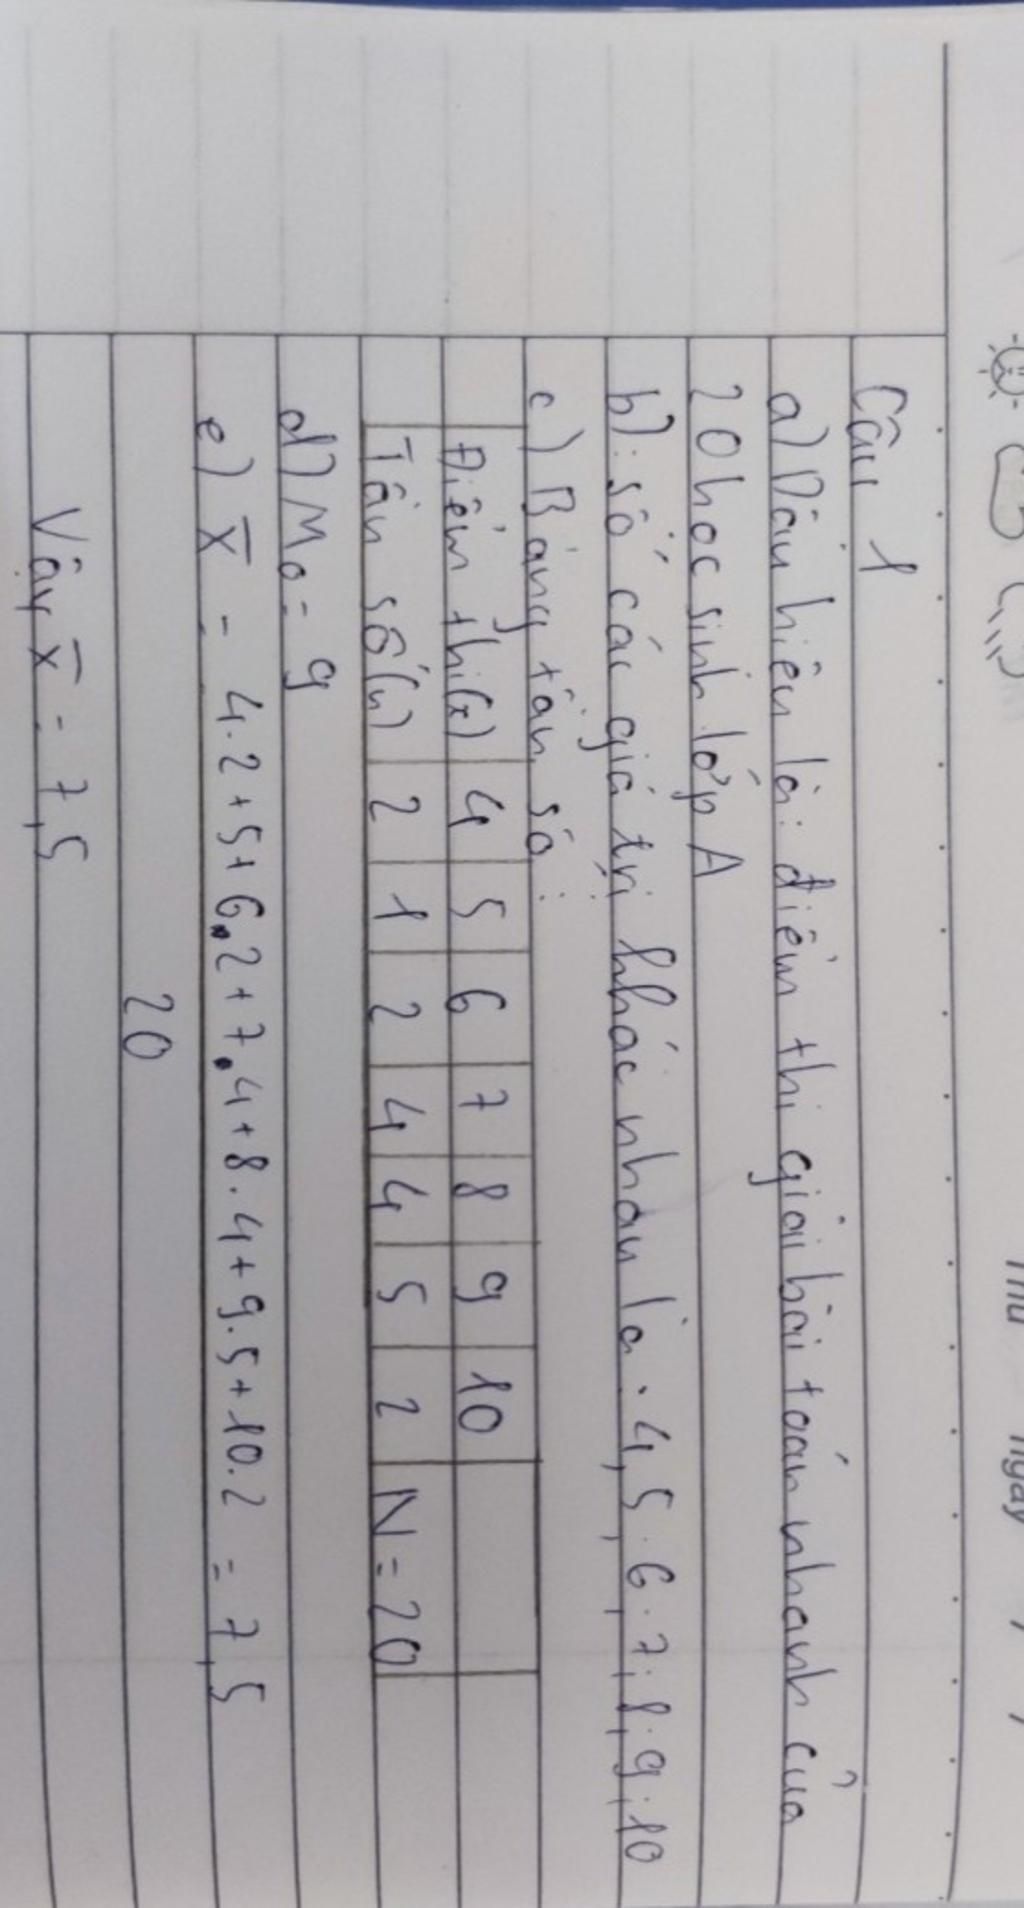 Thứ ngày / /
Câu 1
a) Dấu hiệu là: điểm thi giải bài toán nhanh của
20 học sinh lớp A
b): số các giá trị khác nhau là: 4, 5, 6, 7, 8, 9, 10
c) Bảng tần số:
Điểm thi(x) 4 5 6 7 8 9 10
Tần số(n) 2 1 2 4 4 5 2 N = 20
d) Mo = 9
e) X̄ = 4.2+5+6.2+7.4+8.4+9.5+10.2 = 7,5
20
Vậy X̄ = 7,5